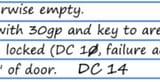 rwise empty.
with 30gp and key to are
locked (DC 10, failure a
" of door. DC 14